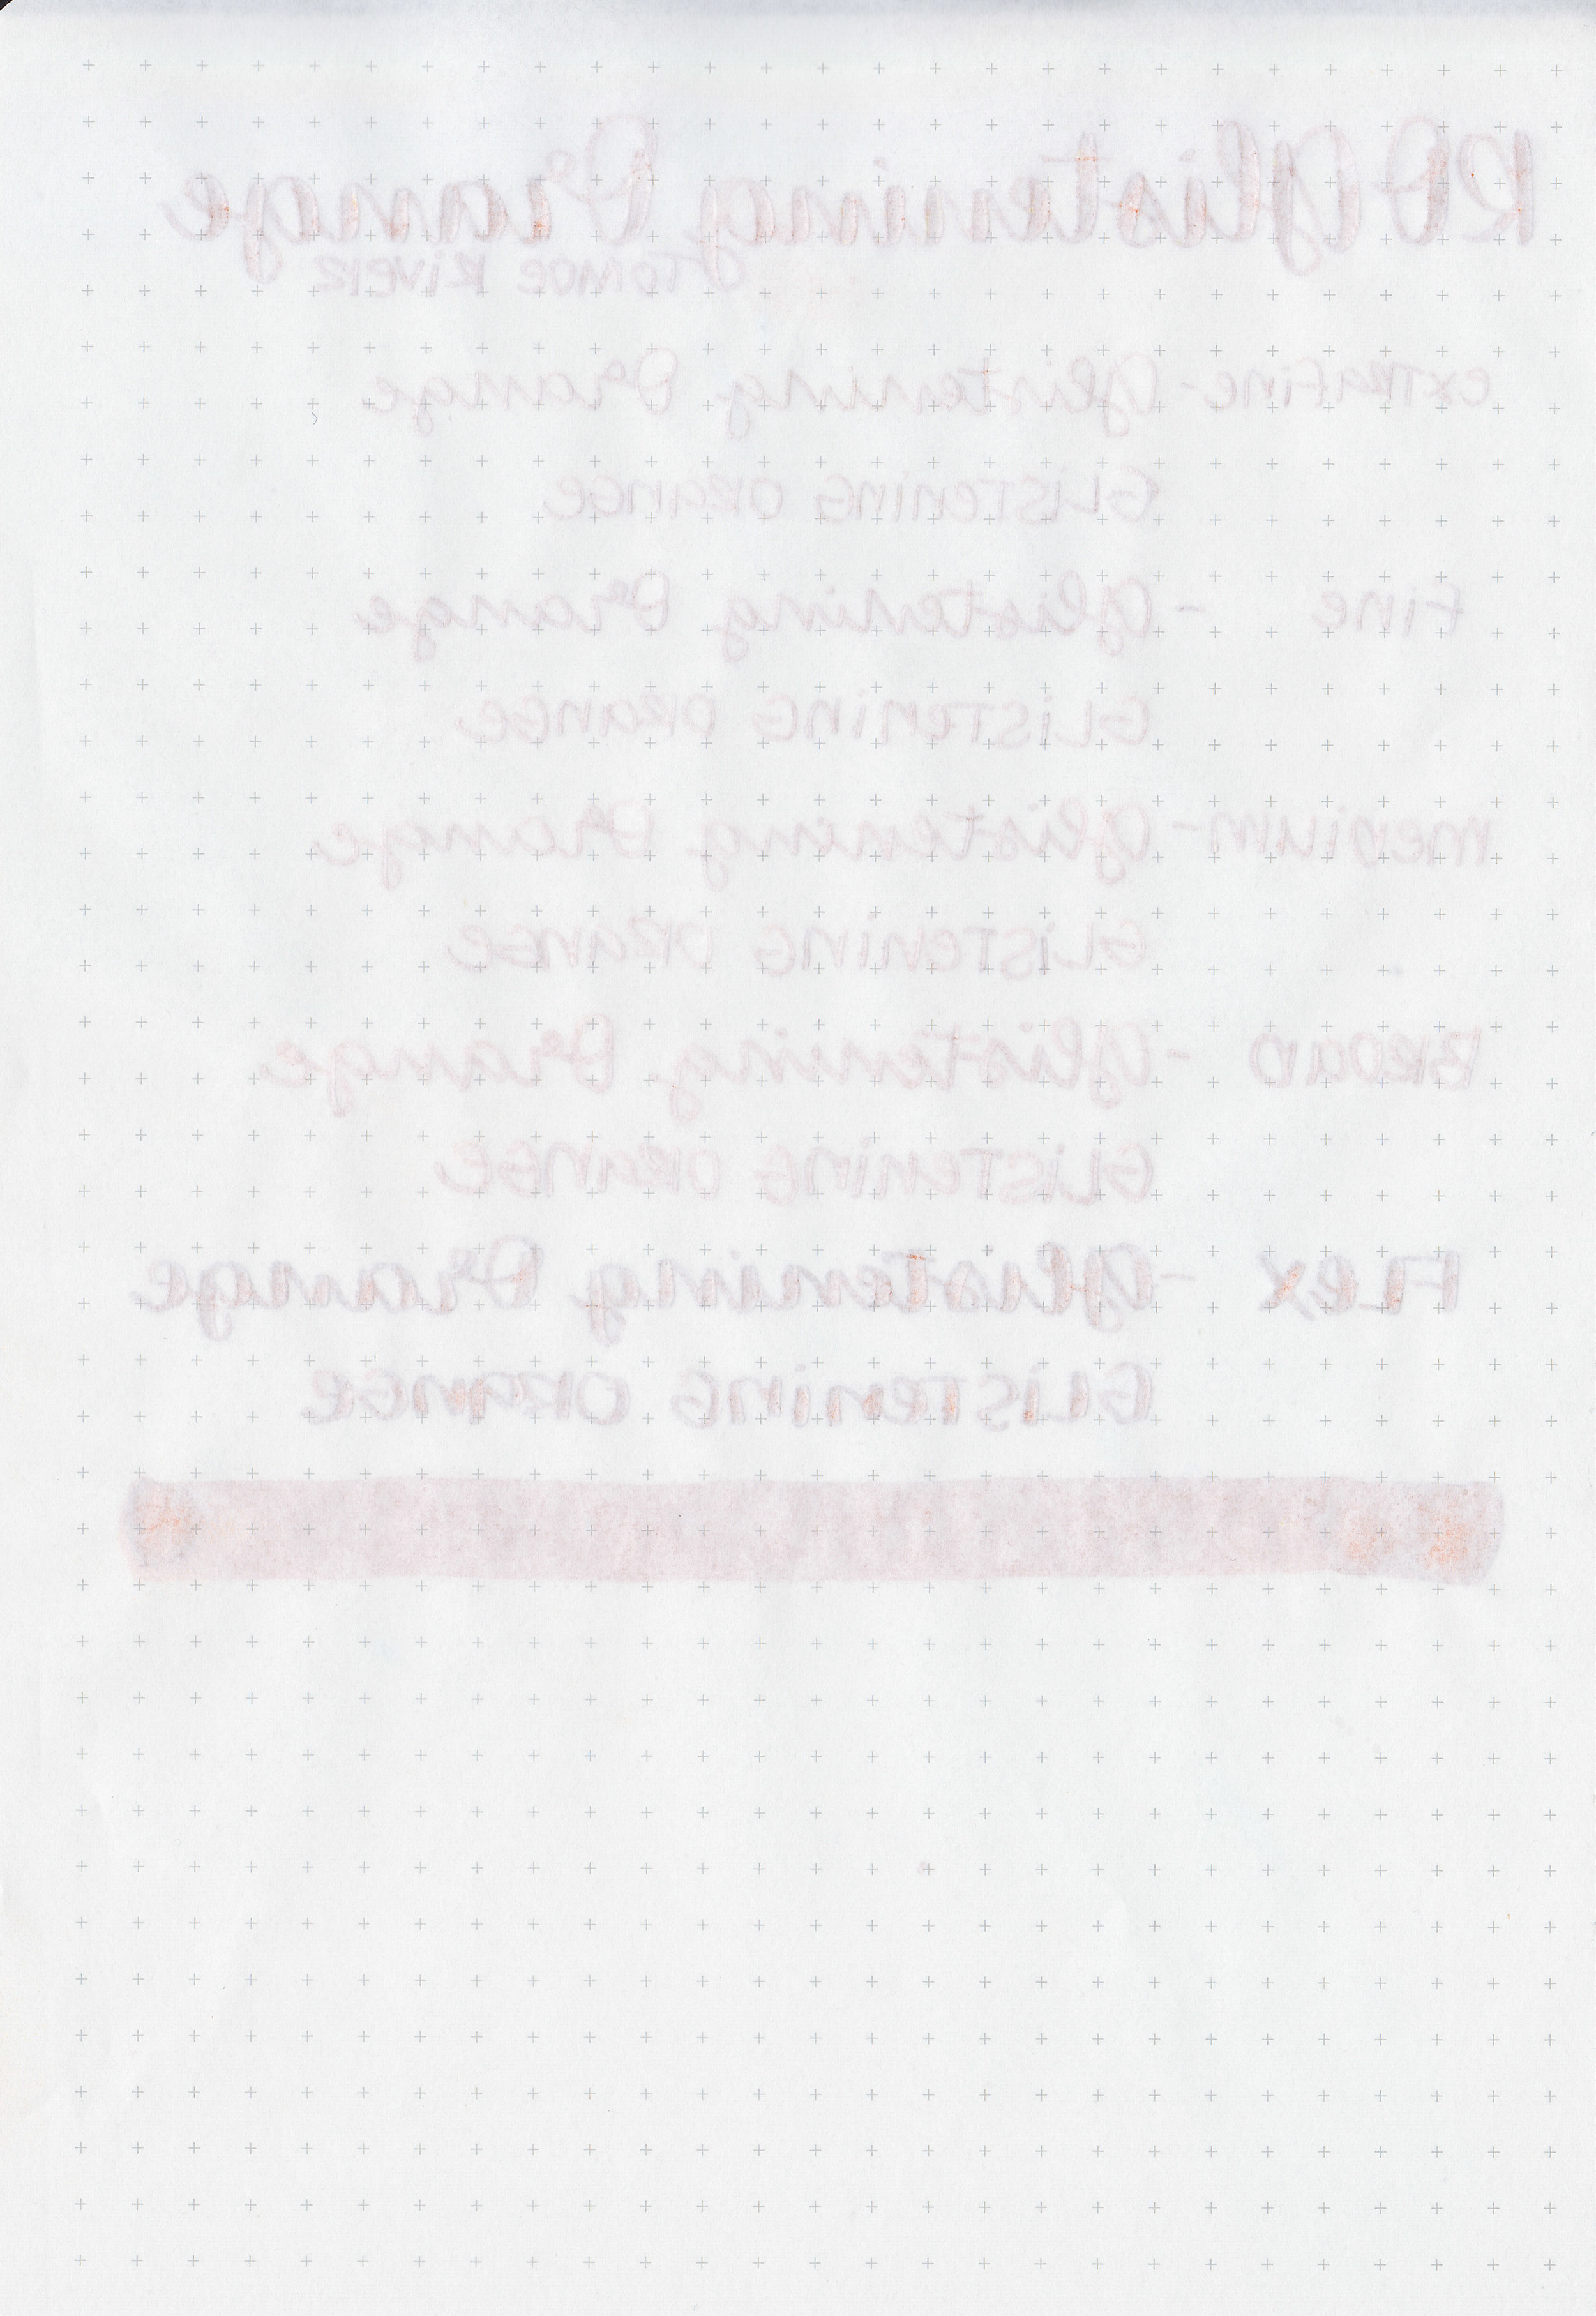 RO Glistening Orange
@TOMOE RIVER
EXTRAFINE - Glistening Orange
GLISTENING ORANGE
FINE - Glistening Orange
GLISTENING ORANGE
MEDIUM - Glistening Orange
GLISTENING ORANGE
BROAD - Glistening Orange
GLISTENING ORANGE
FLEX - Glistening Orange
GLISTENING ORANGE